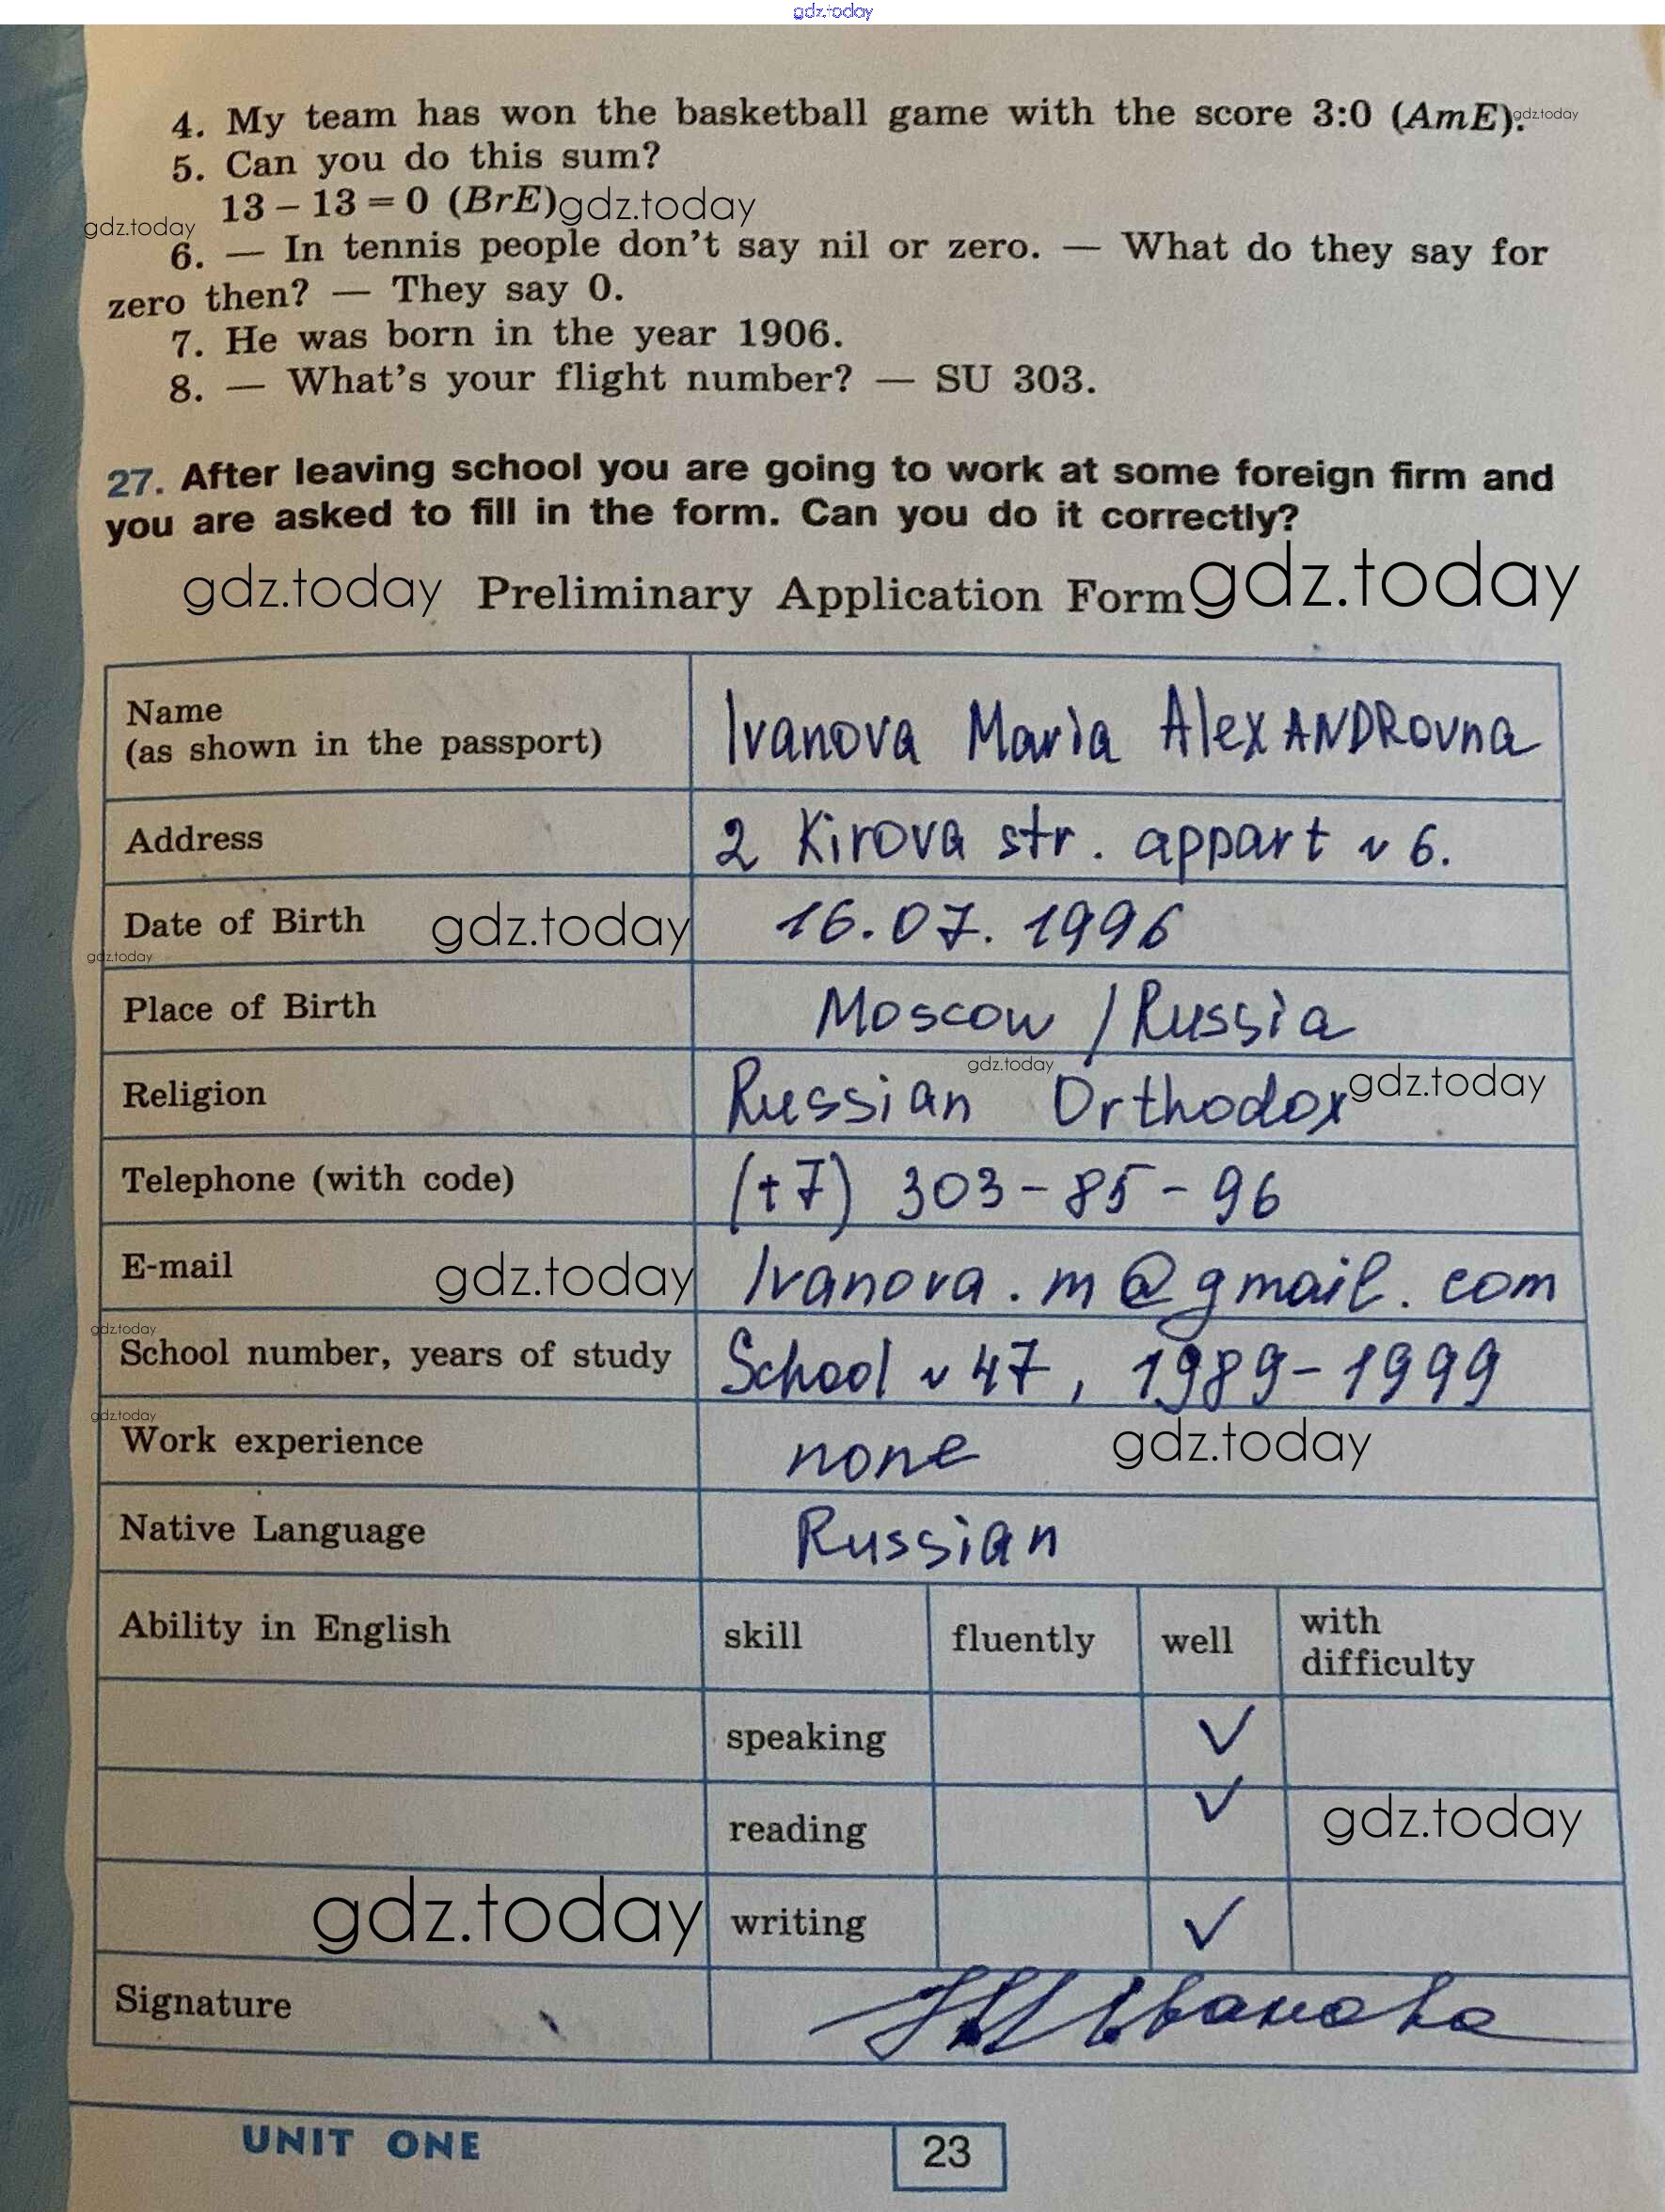 gdz.today
4. My team has won the basketball game with the score 3:0 (AmE). gdz.today
5. Can you do this sum?
13 – 13 = 0 (BrE) gdz.today
gdz.today
6. — In tennis people don't say nil or zero. — What do they say for
zero then? — They say 0.
7. He was born in the year 1906.
8. — What's your flight number? — SU 303.
27. After leaving school you are going to work at some foreign firm and
you are asked to fill in the form. Can you do it correctly?
gdz.today Preliminary Application Form gdz.today
Name
(as shown in the passport) Ivanova Maria AlexANDRovna
Address 2 Kirova str. appart № 6.
Date of Birth gdz.today 16.07.1996
gdz.today
Place of Birth Moscow / Russia
gdz.today
Religion Russian Orthodox gdz.today
Telephone (with code) (+7) 303-85-96
E-mail gdz.today Ivanova.m@gmail.com
gdz.today
School number, years of study School № 47, 1989-1999
gdz.today
Work experience none gdz.today
Native Language Russian
Ability in English skill fluently well with
difficulty
speaking ✓
reading ✓ gdz.today
gdz.today writing ✓
Signature Иванова
UNIT ONE 23